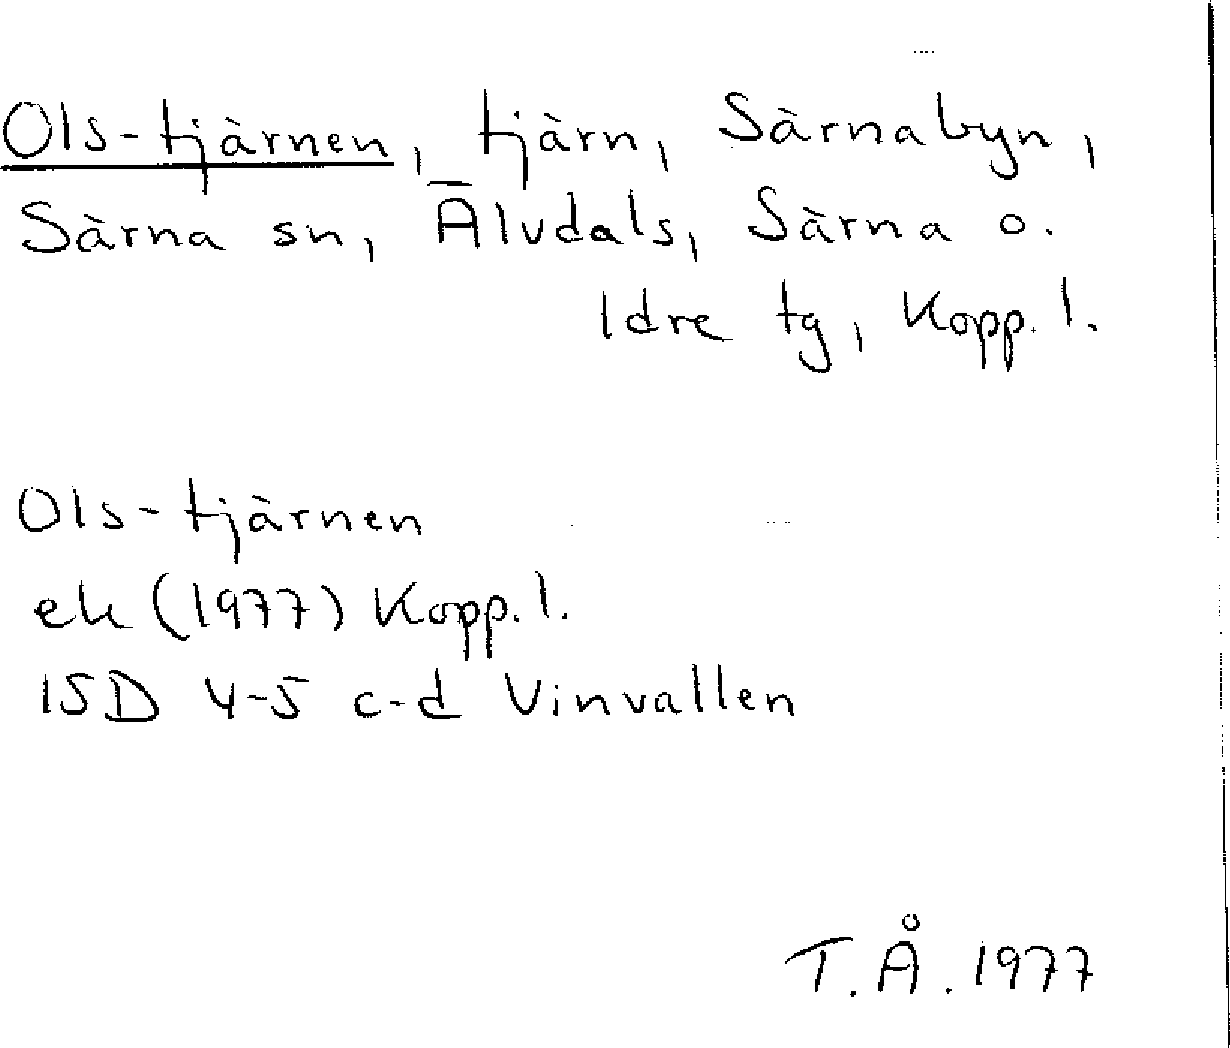 Ols-tjärnen, tjärn, Särnabyn,
Särna sn, Älvdals, Särna o.
Idre tg, Kopp. l.
Ols-tjärnen
ek (1977) Kopp. l.
15D 4-5 c-d Vinvallen
T.Å. 1977